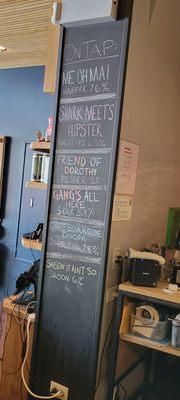 ON TAP:
ME OH MAI
MAIBOCK 7.6%
SHARK MEETS
HIPSTER
WHEAT IPA 6.5%
FRIEND OF
DOROTHY
PILSNER 5%
GANG'S ALL
HERE
SOUR
SKATEBOARDLOVE
DOOM
DOUBLE IPA 7.8%
SAISON IT AINT SO
SAISON 6%